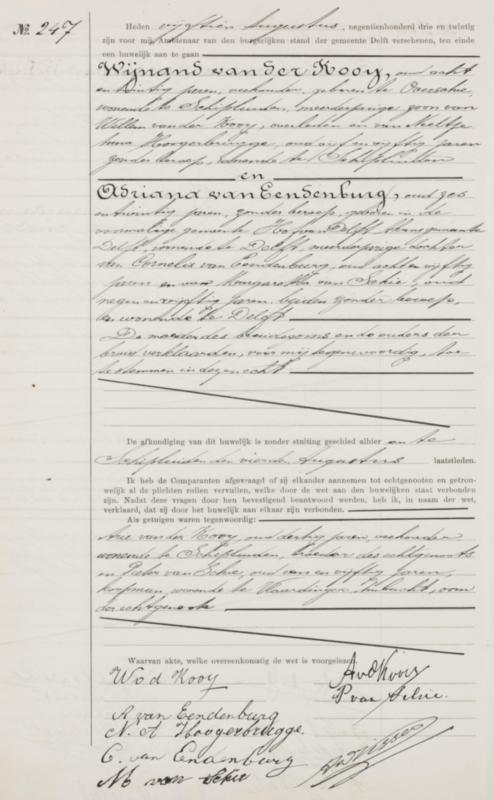 No. 247
Heden vijftien Augustus, negentienhonderd drie en twintig
zijn voor mij, Ambtenaar van den burgerlijken stand der gemeente Delft verschenen, ten einde
een huwelijk aan te gaan
Wijnand van der Kooy, oud acht
en twintig jaren, veehouder, geboren te
wonende te Schipluiden, meerderjarige zoon van
Willem van der Kooy, overleden en van Neeltje
Anna Hoogerbrugge, oud vijf en vijftig jaren
zonder beroep, wonende te Schipluiden
en
Adriana van Eendenburg, oud zes
en twintig jaren, zonder beroep, geboren in de
voormalige gemeente Hof van Delft, thans gemeente
Delft, wonende te Delft, meerderjarige dochter
van Cornelis van Eendenburg, oud acht en vijftig
jaren en van Margaretha van Schie, oud
negen en vijftig jaren, beiden zonder beroep,
en wonende te Delft
De moeder des bruidegoms en de ouders der
bruid verklaarden, voor mij tegenwoordig, toe
te stemmen in deze echt
De afkondiging van dit huwelijk is zonder stuiting geschied alhier en te
Schipluiden den vierden Augustus laatstleden.
Ik heb de Comparanten afgevraagd of zij elkander aannemen tot echtgenooten en getrou-
welijk al de plichten zullen vervullen, welke door de wet aan den huwelijken staat verbonden
zijn. Nadat deze vragen door hen bevestigend beantwoord werden, heb ik, in naam der wet,
verklaard, dat zij door het huwelijk aan elkaar zijn verbonden.
Als getuigen waren tegenwoordig:
Arie van der Kooy, oud dertig jaren, veehouder
wonende te Schipluiden, broeder des echtgenoots
en Pieter van Schie, oud een en vijftig jaren,
koopman, wonende te Vlaardinger Ambacht, oom
der echtgenoote
Waarvan akte, welke overeenkomstig de wet is voorgelezen.
W v d Kooy
A v d Kooy
P van Schie.
A. van Eendenburg
N. A Hoogerbrugge.
C. van Eendenburg
M van Schie